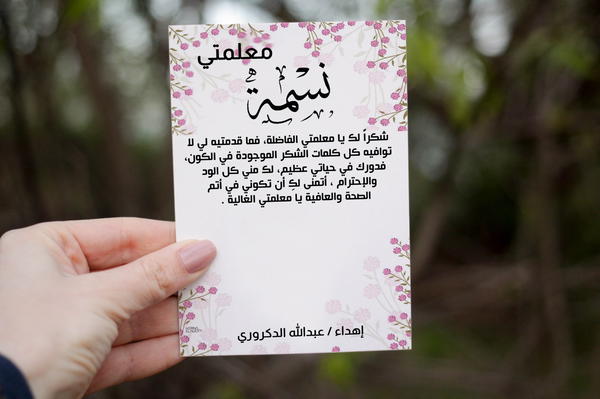 معلمتي
نسمة
شكراً لك يا معلمتي الفاضلة، فما قدمتيه لي لا
توافيه كل كلمات الشكر الموجودة في الكون،
فدورك في حياتي عظيم، لك مني كل الود
والإحترام ، أتمنى لكِ أن تكوني في أتم
الصحة والعافية يا معلمتي الغالية .
إهداء / عبدالله الدكروري